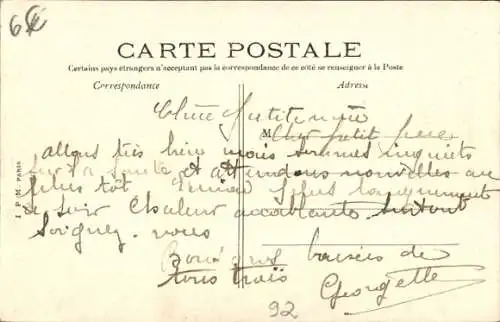 6€
CARTE POSTALE
Certains pays étrangers n'acceptant pas la correspondance de ce côté se renseigner à la Poste
Correspondance
Adresse
Chère petite
M
Cher petit
allons très bien mais sommes inquiets
sur ta santé et attendons nouvelles au
plus tôt longuement
ce soir Chaleur accablante surtout
Soignez-vous
Bons gros baisers de
tous trois
Georgette
92
I. P. M. PARIS